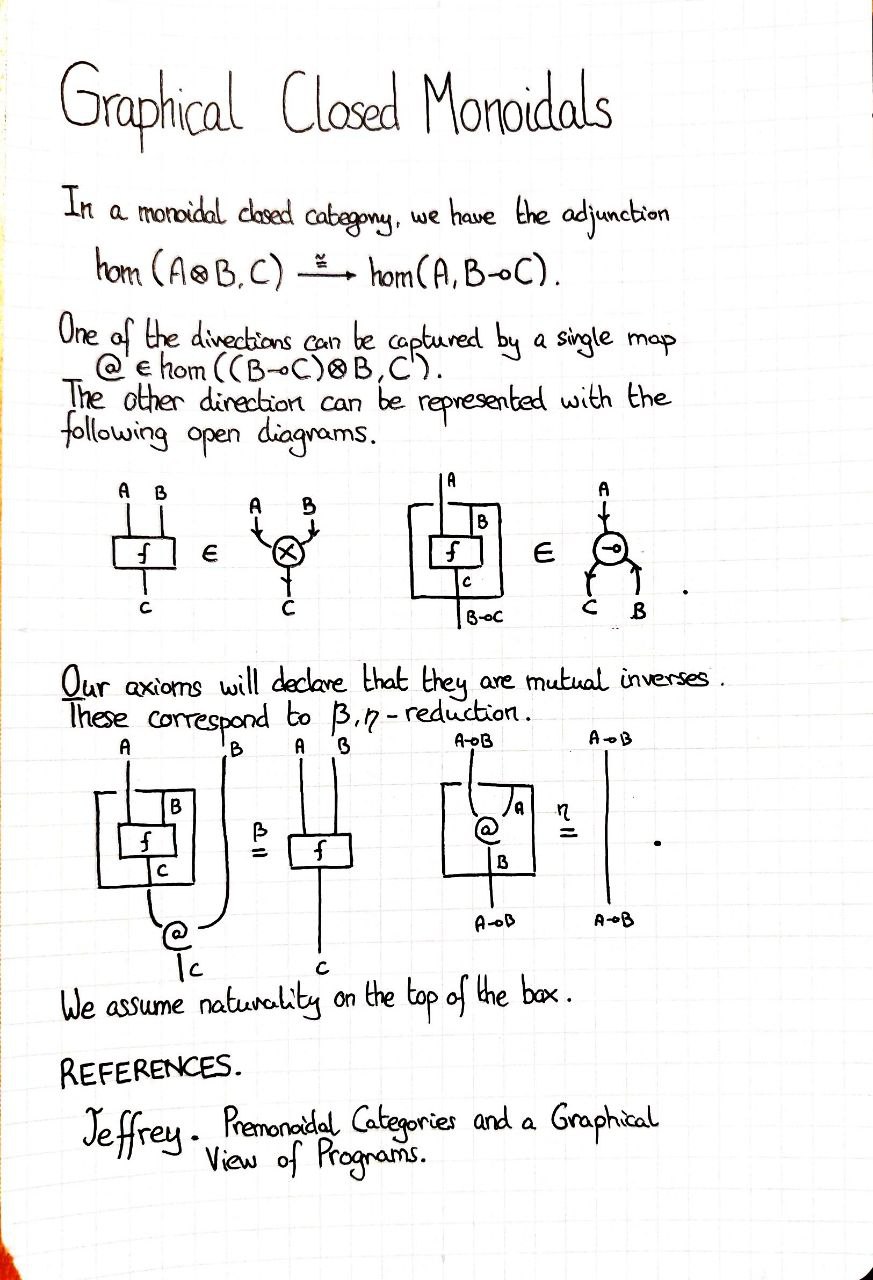 Graphical Closed Monoidals
In a monoidal closed category, we have the adjunction
hom (A⊗B, C) ≅→ hom(A, B⊸C).
One of the directions can be captured by a single map
@ ∈ hom ((B⊸C)⊗B, C).
The other direction can be represented with the
following open diagrams.
A B A B A B f C B⊸C A
f ∈ ⊗ C ∈ ⊸
C C B .
Our axioms will declare that they are mutual inverses.
These correspond to β,η-reduction.
A B A B A⊸B A⊸B
B A
f β = f @ η = .
C B
@ A⊸B A⊸B
C C
We assume naturality on the top of the box.
REFERENCES.
Jeffrey. Premonoidal Categories and a Graphical
View of Programs.